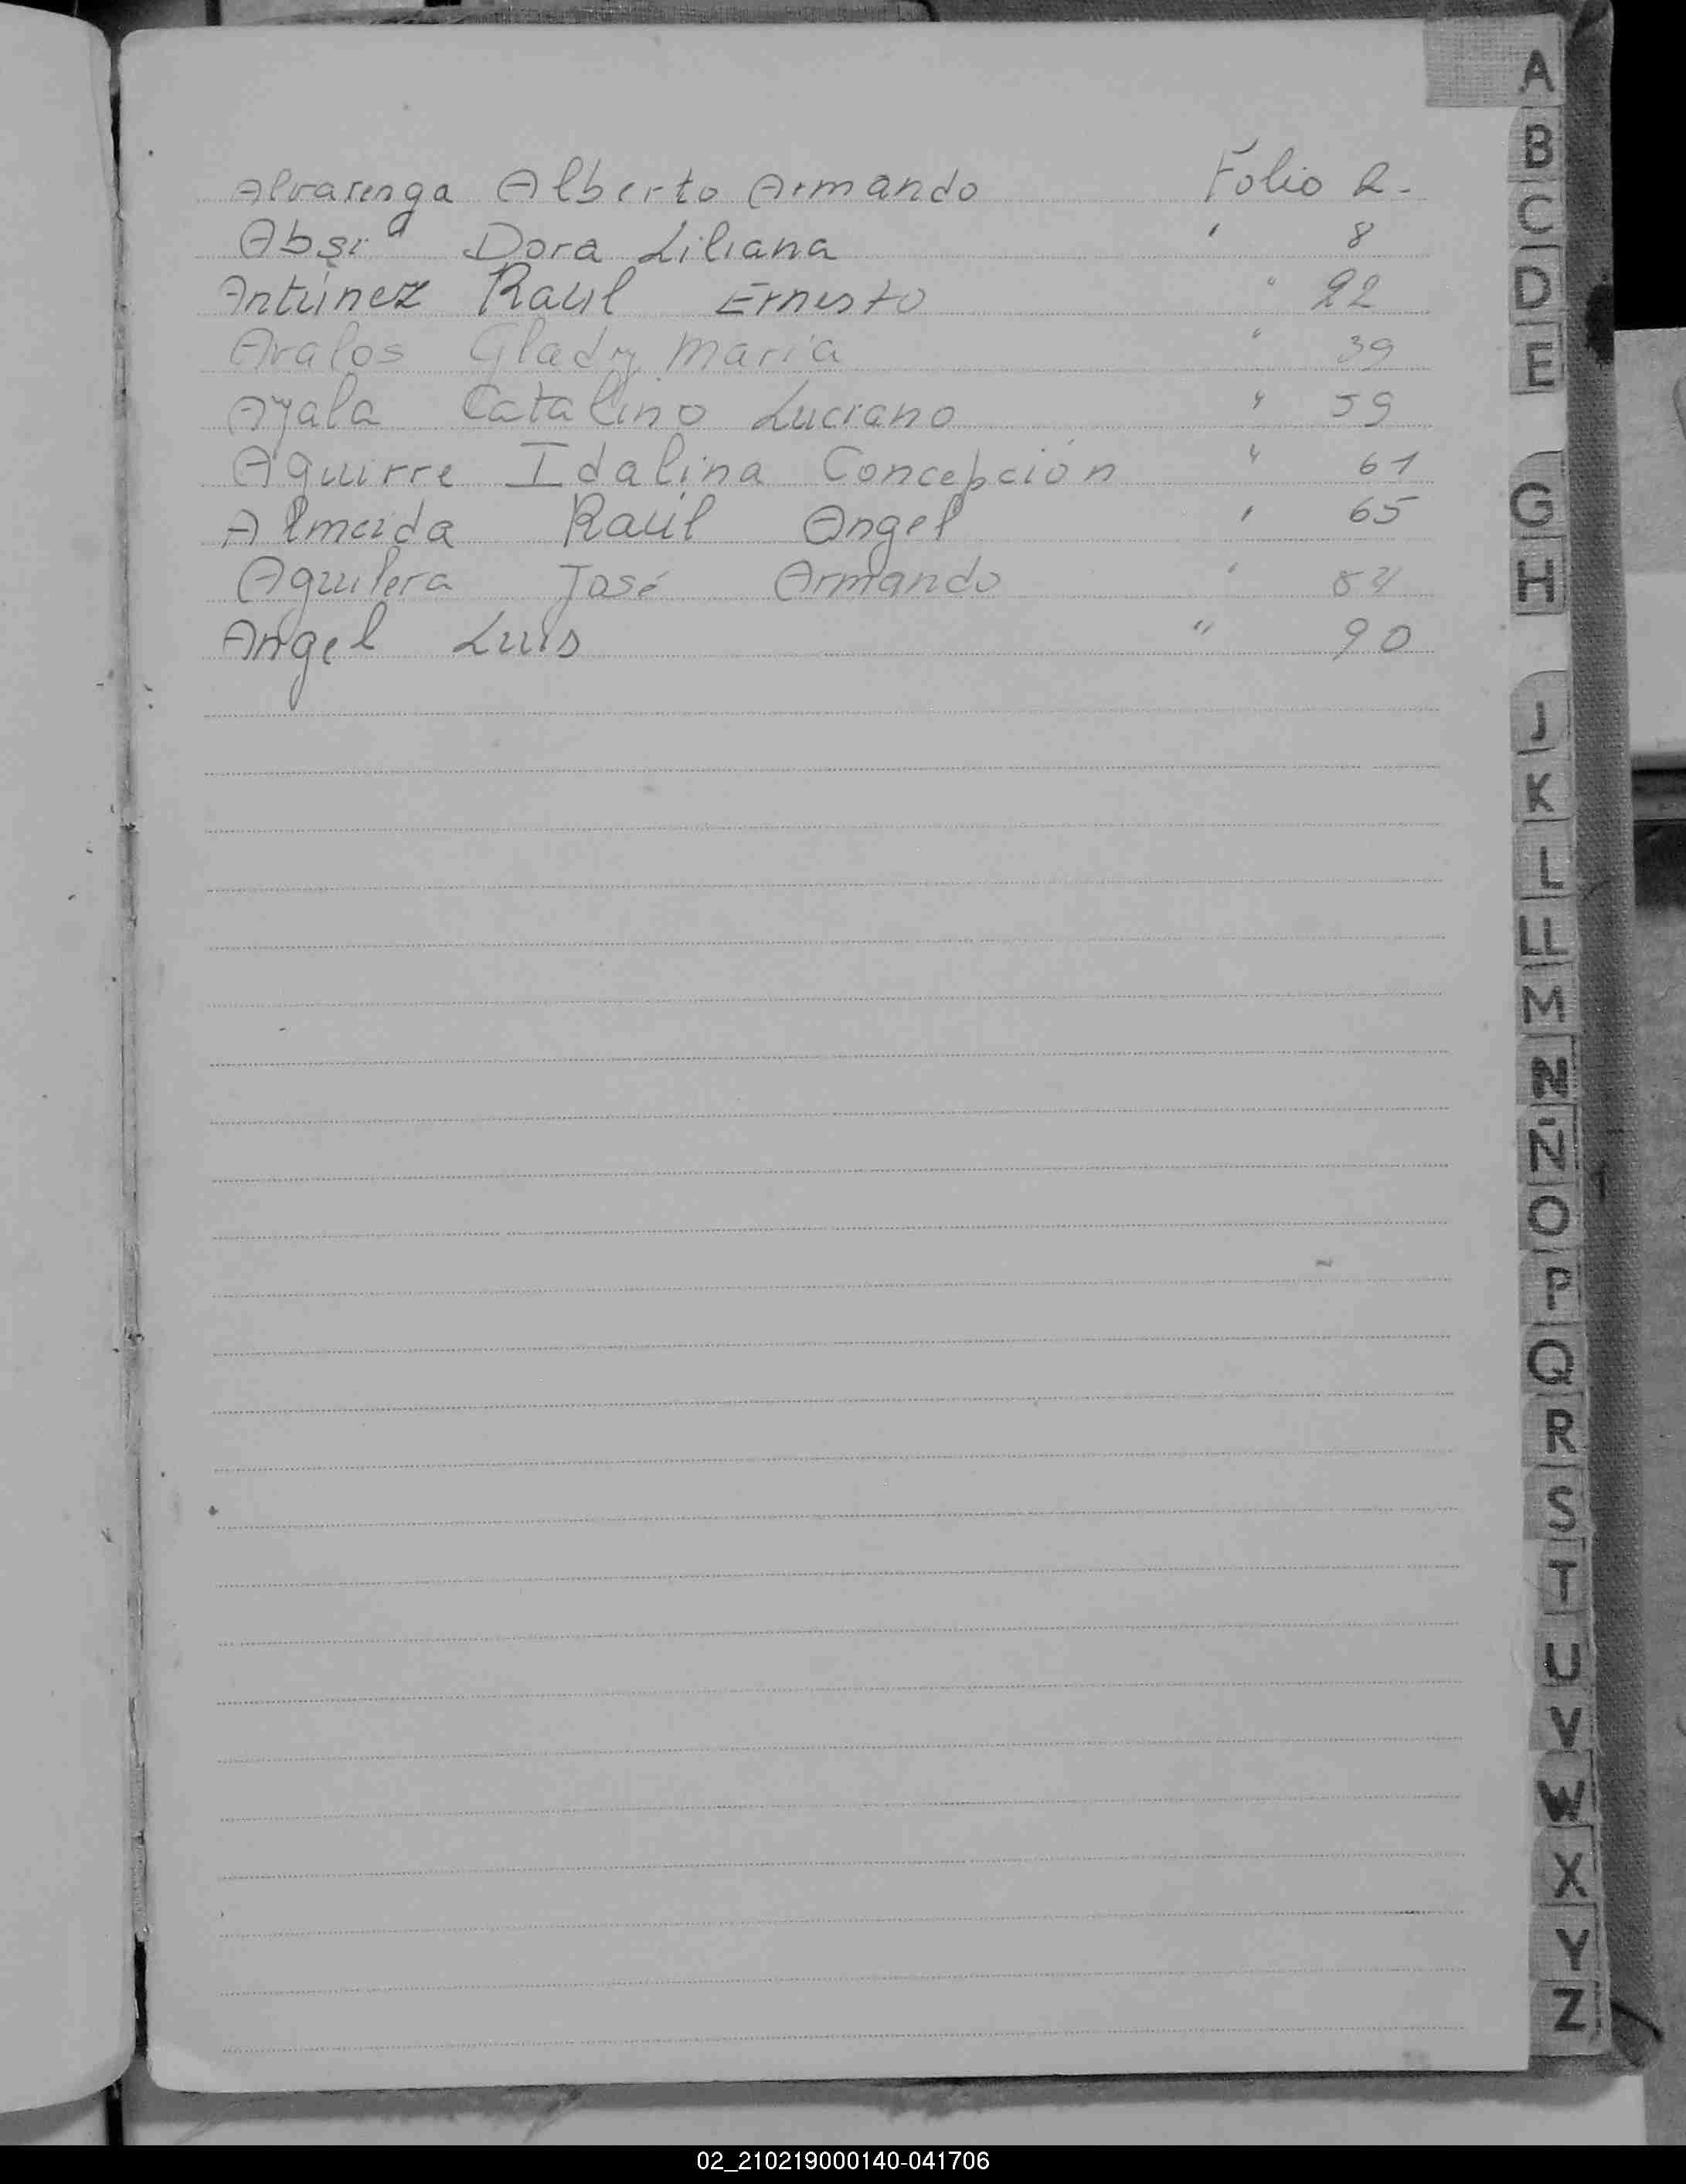 Alvarenga Alberto Armando Folio 2.
Absi Dora Liliana " 8
Antúnez Raúl Ernesto " 22
Avalos Glady Maria " 39
Ayala Catalino Luciano " 59
Aguirre Idalina Concepción " 61
Almeida Raúl Angel " 65
Aguilera José Armando "
Angel Luis " 90
A
B
C
D
E
G
H
J
K
L
LL
M
N
Ñ
O
P
Q
R
S
T
U
V
W
X
Y
Z
02_210219000140-041706